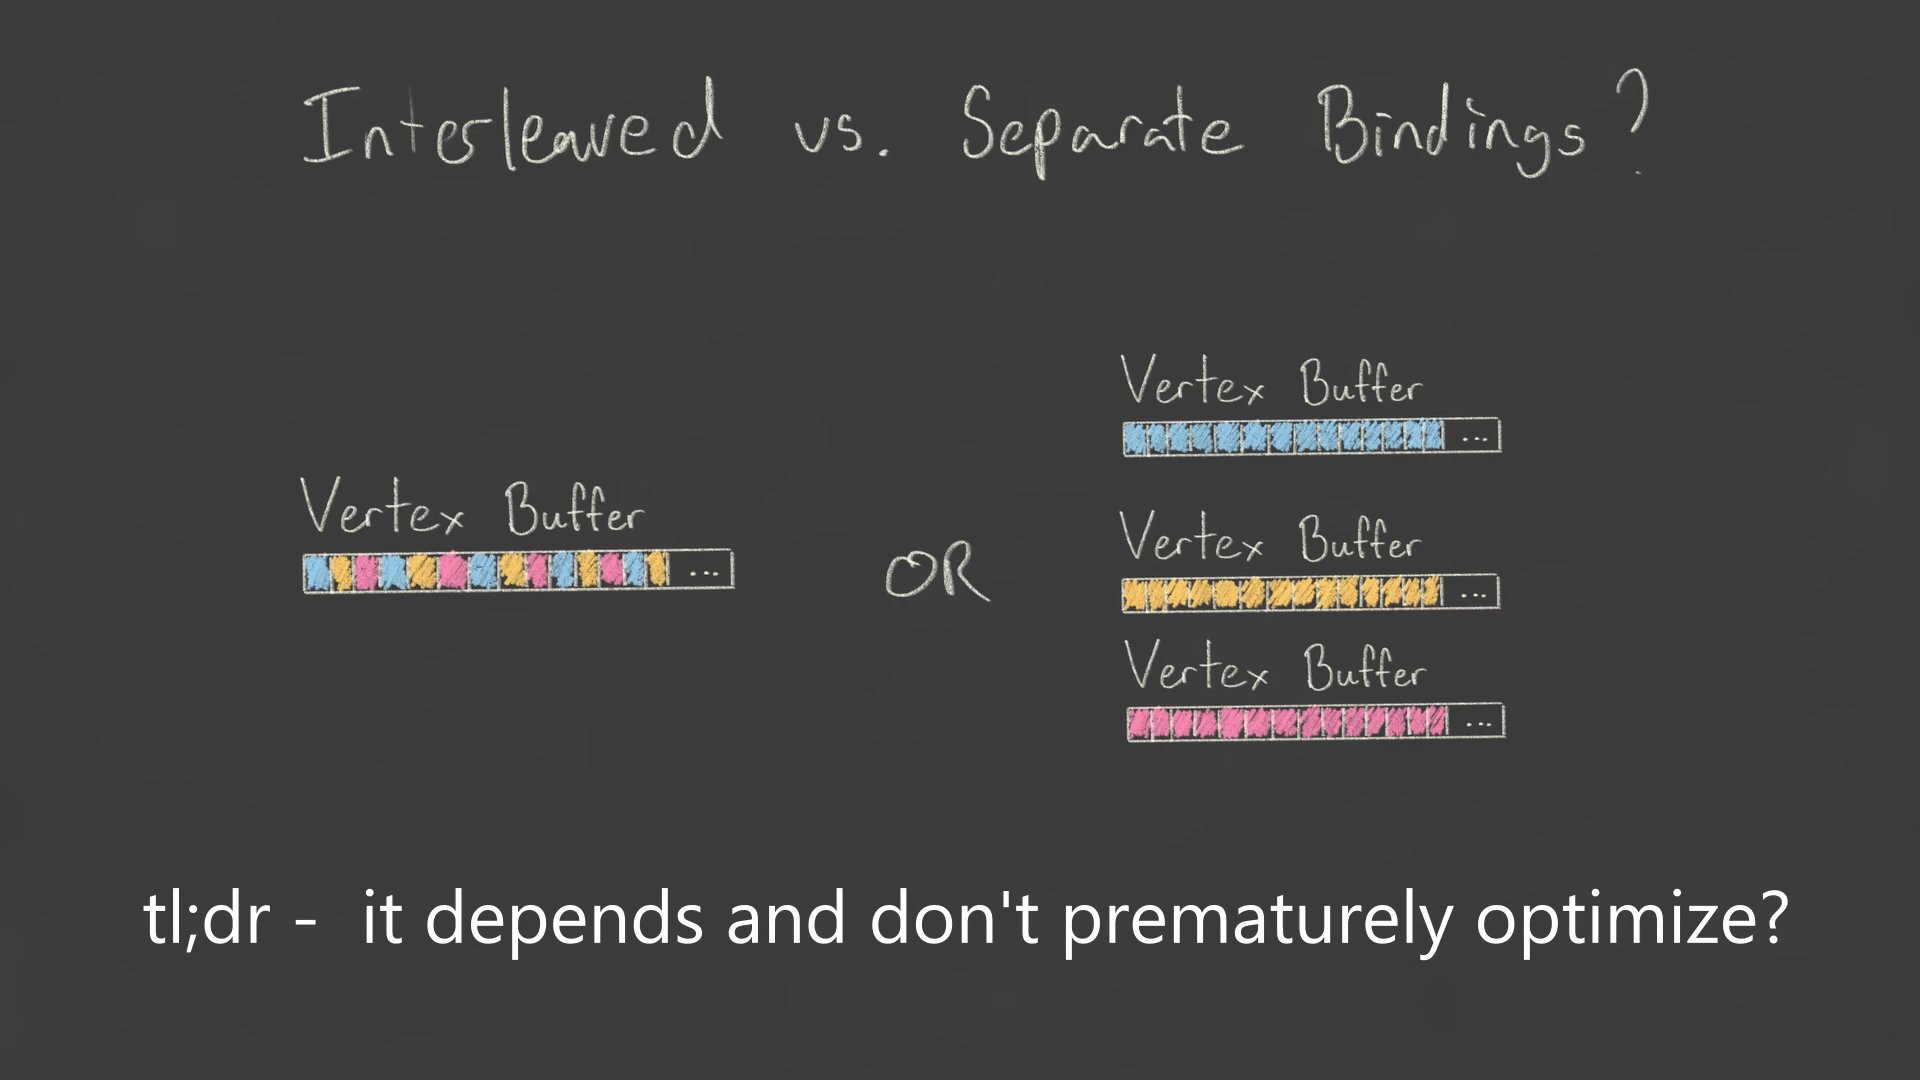 Interleaved vs. Separate Bindings?
Vertex Buffer
...
OR
Vertex Buffer
...
Vertex Buffer
...
Vertex Buffer
...
tl;dr - it depends and don't prematurely optimize?